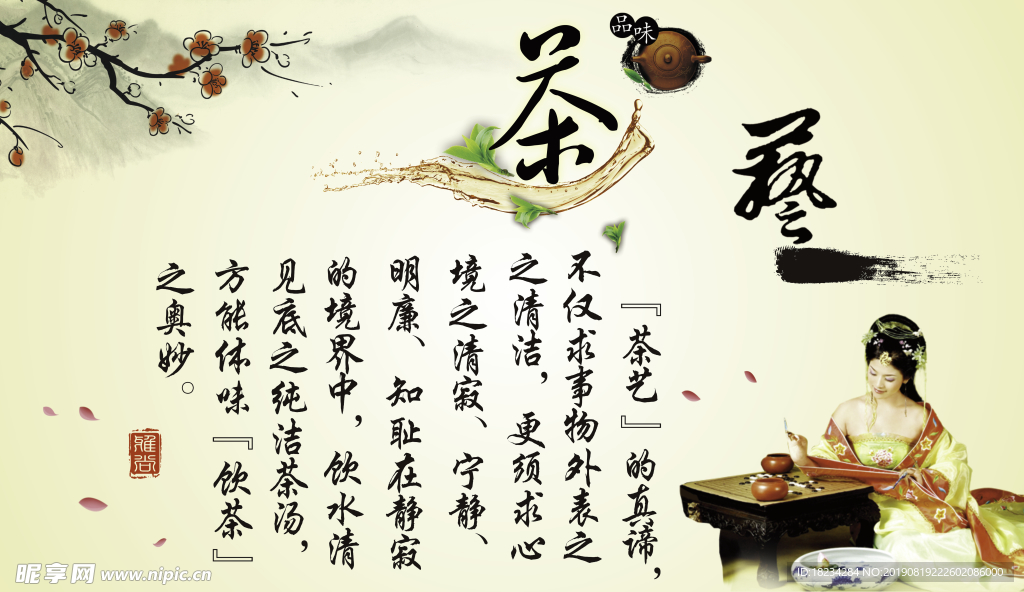 品味
茶
藝
『茶艺』的真谛，
不仅求事物外表之
之清洁，更须求心
境之清寂、宁静、
明廉、知耻在静寂
的境界中，饮水清
见底之纯洁茶汤，
方能体味『饮茶』
之奥妙。
昵享网 www.nipic.cn
ID:18234284 NO:20190819222602086000